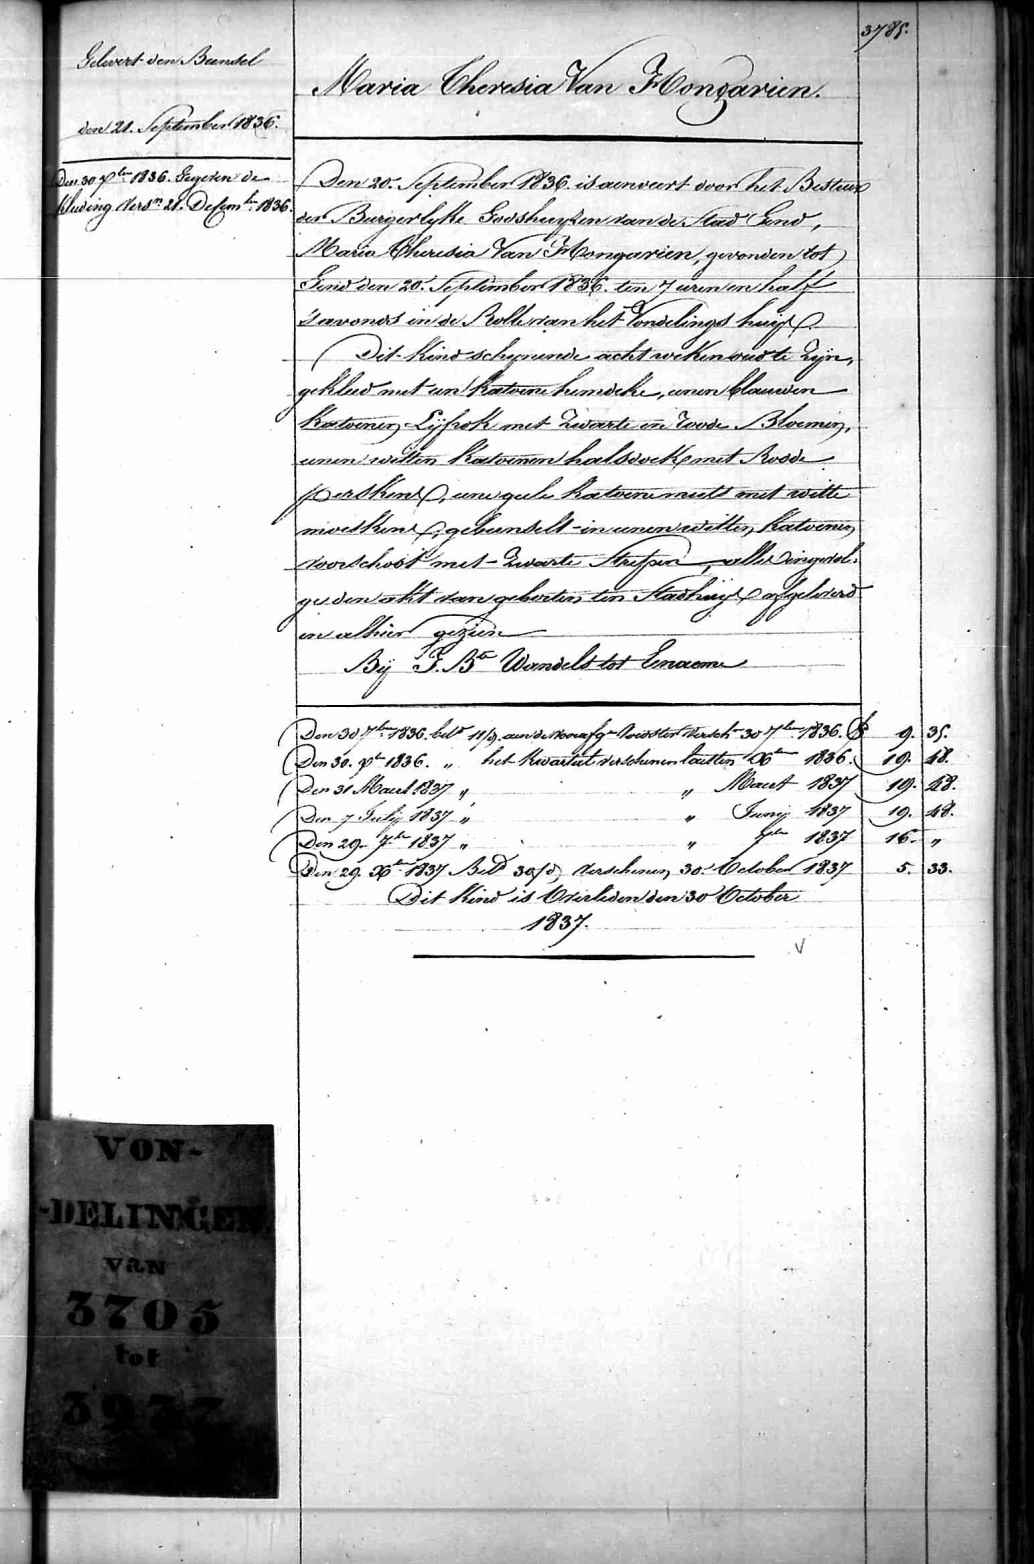 3785.
Gelevert den Bundel
den 21. September 1836.
Den 30 Xber 1836. Gegeven de
kleding versn 21. Decembr 1836.
Maria Theresia Van Hongarien.
Den 20. September 1836. is aenveert door het Bestuur
der Burgerlyke Godshuyzen van de Stad Gend,
Maria Theresia Van Hongarien, gevonden tot
Gend den 20. September 1836. ten 7 uren en half
'savonds in de Rolle van het Vondelings huijs.
Dit kind schynende acht weken oud te zijn,
gekleed met een katoene hemdeke, eenen blauwen
katoenen Lijfrok met zwarte en roode Bloemen,
eenen witten katoenen halsdoek met Roode
perskens, eene geele katoene muts met witte
moeskens, gebundelt in eenen witten katoenen
voorschoot met zwarte strepen, alles ingevol-
ge den akt van geboorten ten Stadhuijs afgeleverd
en alhier gezien
Bij J. Bte Wandels tot Enaeme
Den 30 7ber 1836. betd 11/9. aen de voedster versch. 30 7ber 1836. 9. 35.
Den 30. Xbr 1836. „ het kwartiel verschenen laetsten Xber 1836. 19. 48.
Den 31 Maert 1837 „ „ Maert 1837 19. 48.
Den 7 July 1837 „ „ Junij 1837 19. 48.
Den 29. 7br 1837 „ „ 7ber 1837 16. „
Den 29 Xber 1837 Betd 30/d verschenen 30 October 1837 5. 33.
Dit kind is Overleden den 30 October
1837.
VON-
-DELINGEN
VAN
3705
tot
3977